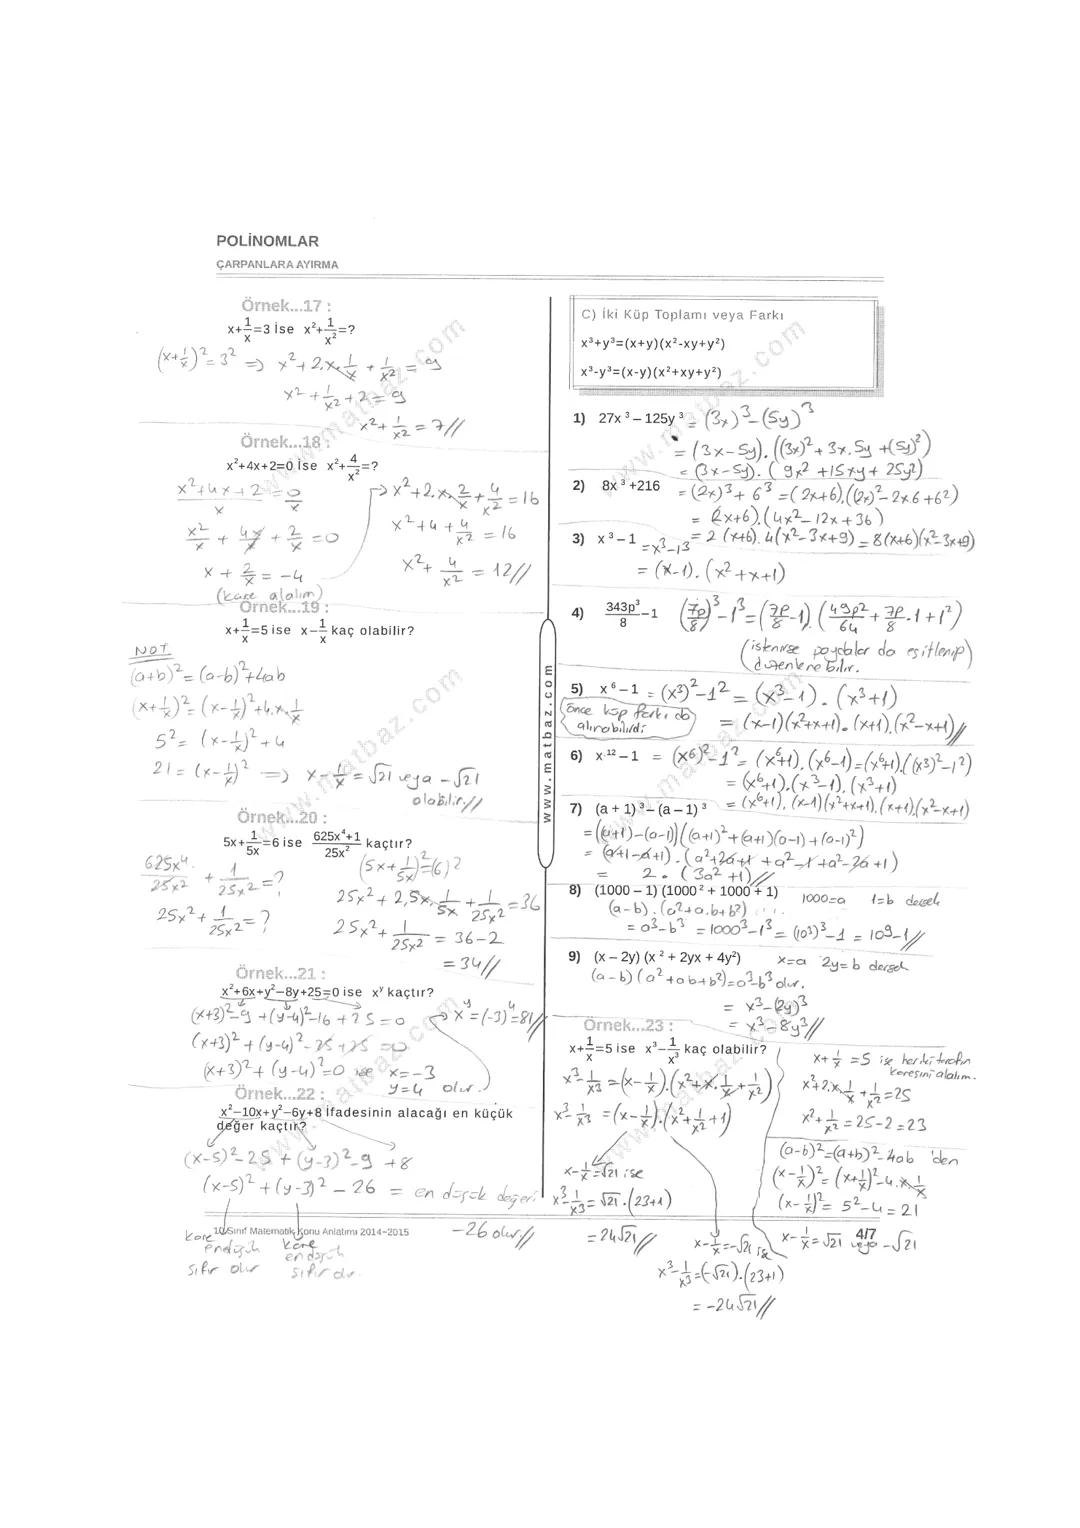 POLİNOMLAR
ÇARPANLARA AYIRMA
Örnek...17 :
x+1/x=3 İse x²+1/x²=?
(x+1/x)²=3² => x²+2.x.1/x+1/x²=9
x²+1/x²+2=9
x²+1/x²=7//
Örnek...18 :
x²+4x+2=0 İse x²+4/x²=?
(x²+4x+2)/x=0/x
x²/x+4x/x+2/x=0
x+2/x=-4
(kare alalım)
x²+2.x.2/x+4/x²=16
x²+4+4/x²=16
x²+4/x²=12//
Örnek...19 :
x+1/x=5 ise x−1/x kaç olabilir?
NOT
(a+b)²=(a-b)²+4ab
(x+1/x)²=(x-1/x)²+4.x.1/x
5²=(x-1/x)²+4
21=(x-1/x)² => x-1/x=√21 veya -√21
olabilir.//
Örnek...20 :
5x+1/5x=6 ise (625x⁴+1)/25x² kaçtır?
625x⁴/25x²+1/25x²=?
25x²+1/25x²=?
(5x+1/5x)²=(6)²
25x²+2.5x.1/5x+1/25x²=36
25x²+1/25x²=36-2
=34//
Örnek...21 :
x²+6x+y²−8y+25=0 ise xʸ kaçtır?
(x+3)²-9+(y-4)²-16+25=0
(x+3)²+(y-4)²-25+25=0
(x+3)²+(y-4)²=0 ise x=-3
y=4 olur.
xʸ=(-3)⁴=81//
Örnek...22 :
x²−10x+y²−6y+8 İfadesinin alacağı en küçük
değer kaçtır?
(x-5)²-25+(y-3)²-9+8
(x-5)²+(y-3)²-26 = en düşük değeri
-26 olur//
Kare
en düşük
sıfır olur
Kare
en düşük
sıfır olur.
10.Sınıf Matematik Konu Anlatımı 2014−2015
www.matbaz.com
C) İki Küp Toplamı veya Farkı
x³+y³=(x+y)(x²-xy+y²)
x³-y³=(x-y)(x²+xy+y²)
1) 27x³ – 125y³ = (3x)³-(5y)³
= (3x-5y).((3x)²+3x.5y+(5y)²)
= (3x-5y).(9x²+15xy+25y²)
2) 8x³ +216 = (2x)³+6³=(2x+6).((2x)²-2x.6+6²)
= (2x+6).(4x²-12x+36)
= 2(x+6).4(x²-3x+9)=8(x+6)(x²-3x+9)
3) x³ – 1 = x³-1³
= (x-1).(x²+x+1)
4) 343p³/8 –1 (7p/8)³-1³=(7p/8-1).(49p²/64+7p/8.1+1²)
(istenirse paydalar da eşitlenip
düzenlenebilir.)
5) x⁶ – 1 = (x³)²-1²=(x³-1).(x³+1)
(önce küp farkı da
alınabilirdi)
= (x-1)(x²+x+1).(x+1).(x²-x+1)//
6) x¹² – 1 = (x⁶)²-1²=(x⁶+1).(x⁶-1)=(x⁶+1).((x³)²-1²)
= (x⁶+1).(x³-1).(x³+1)
= (x⁶+1).(x-1)(x²+x+1).(x+1).(x²-x+1)
7) (a + 1)³ – (a – 1)³
=((a+1)-(a-1))((a+1)²+(a+1)(a-1)+(a-1)²)
= (a+1-a+1).(a²+2a+1+a²-1+a²-2a+1)
= 2.(3a²+1)//
8) (1000 – 1) (1000² + 1000 + 1) 1000=a 1=b dersek
(a-b).(a²+a.b+b²)...
= a³-b³ = 1000³-1³=(10³)³-1=10⁹-1//
9) (x – 2y) (x² + 2yx + 4y²) x=a 2y=b dersek
(a-b)(a²+ab+b²)=a³-b³ olur.
= x³-(2y)³
= x³-8y³//
Örnek...23 :
x+1/x=5 ise x³−1/x³ kaç olabilir?
x³-1/x³=(x-1/x).(x²+x.1/x+1/x²)
x³-1/x³=(x-1/x).(x²+1/x²+1)
x-1/x=√21 ise
x³-1/x³=√21.(23+1)
=24√21//
x-1/x=-√21 ise
x³-1/x³=(-√21).(23+1)
= -24√21//
x+1/x=5 ise her iki tarafın
karesini alalım.
x²+2.x.1/x+1/x²=25
x²+1/x²=25-2=23
(a-b)²=(a+b)²-4ab 'den
(x-1/x)²=(x+1/x)²-4.x.1/x
(x-1/x)²=5²-4=21
x-1/x=√21 veya -√21
4/7